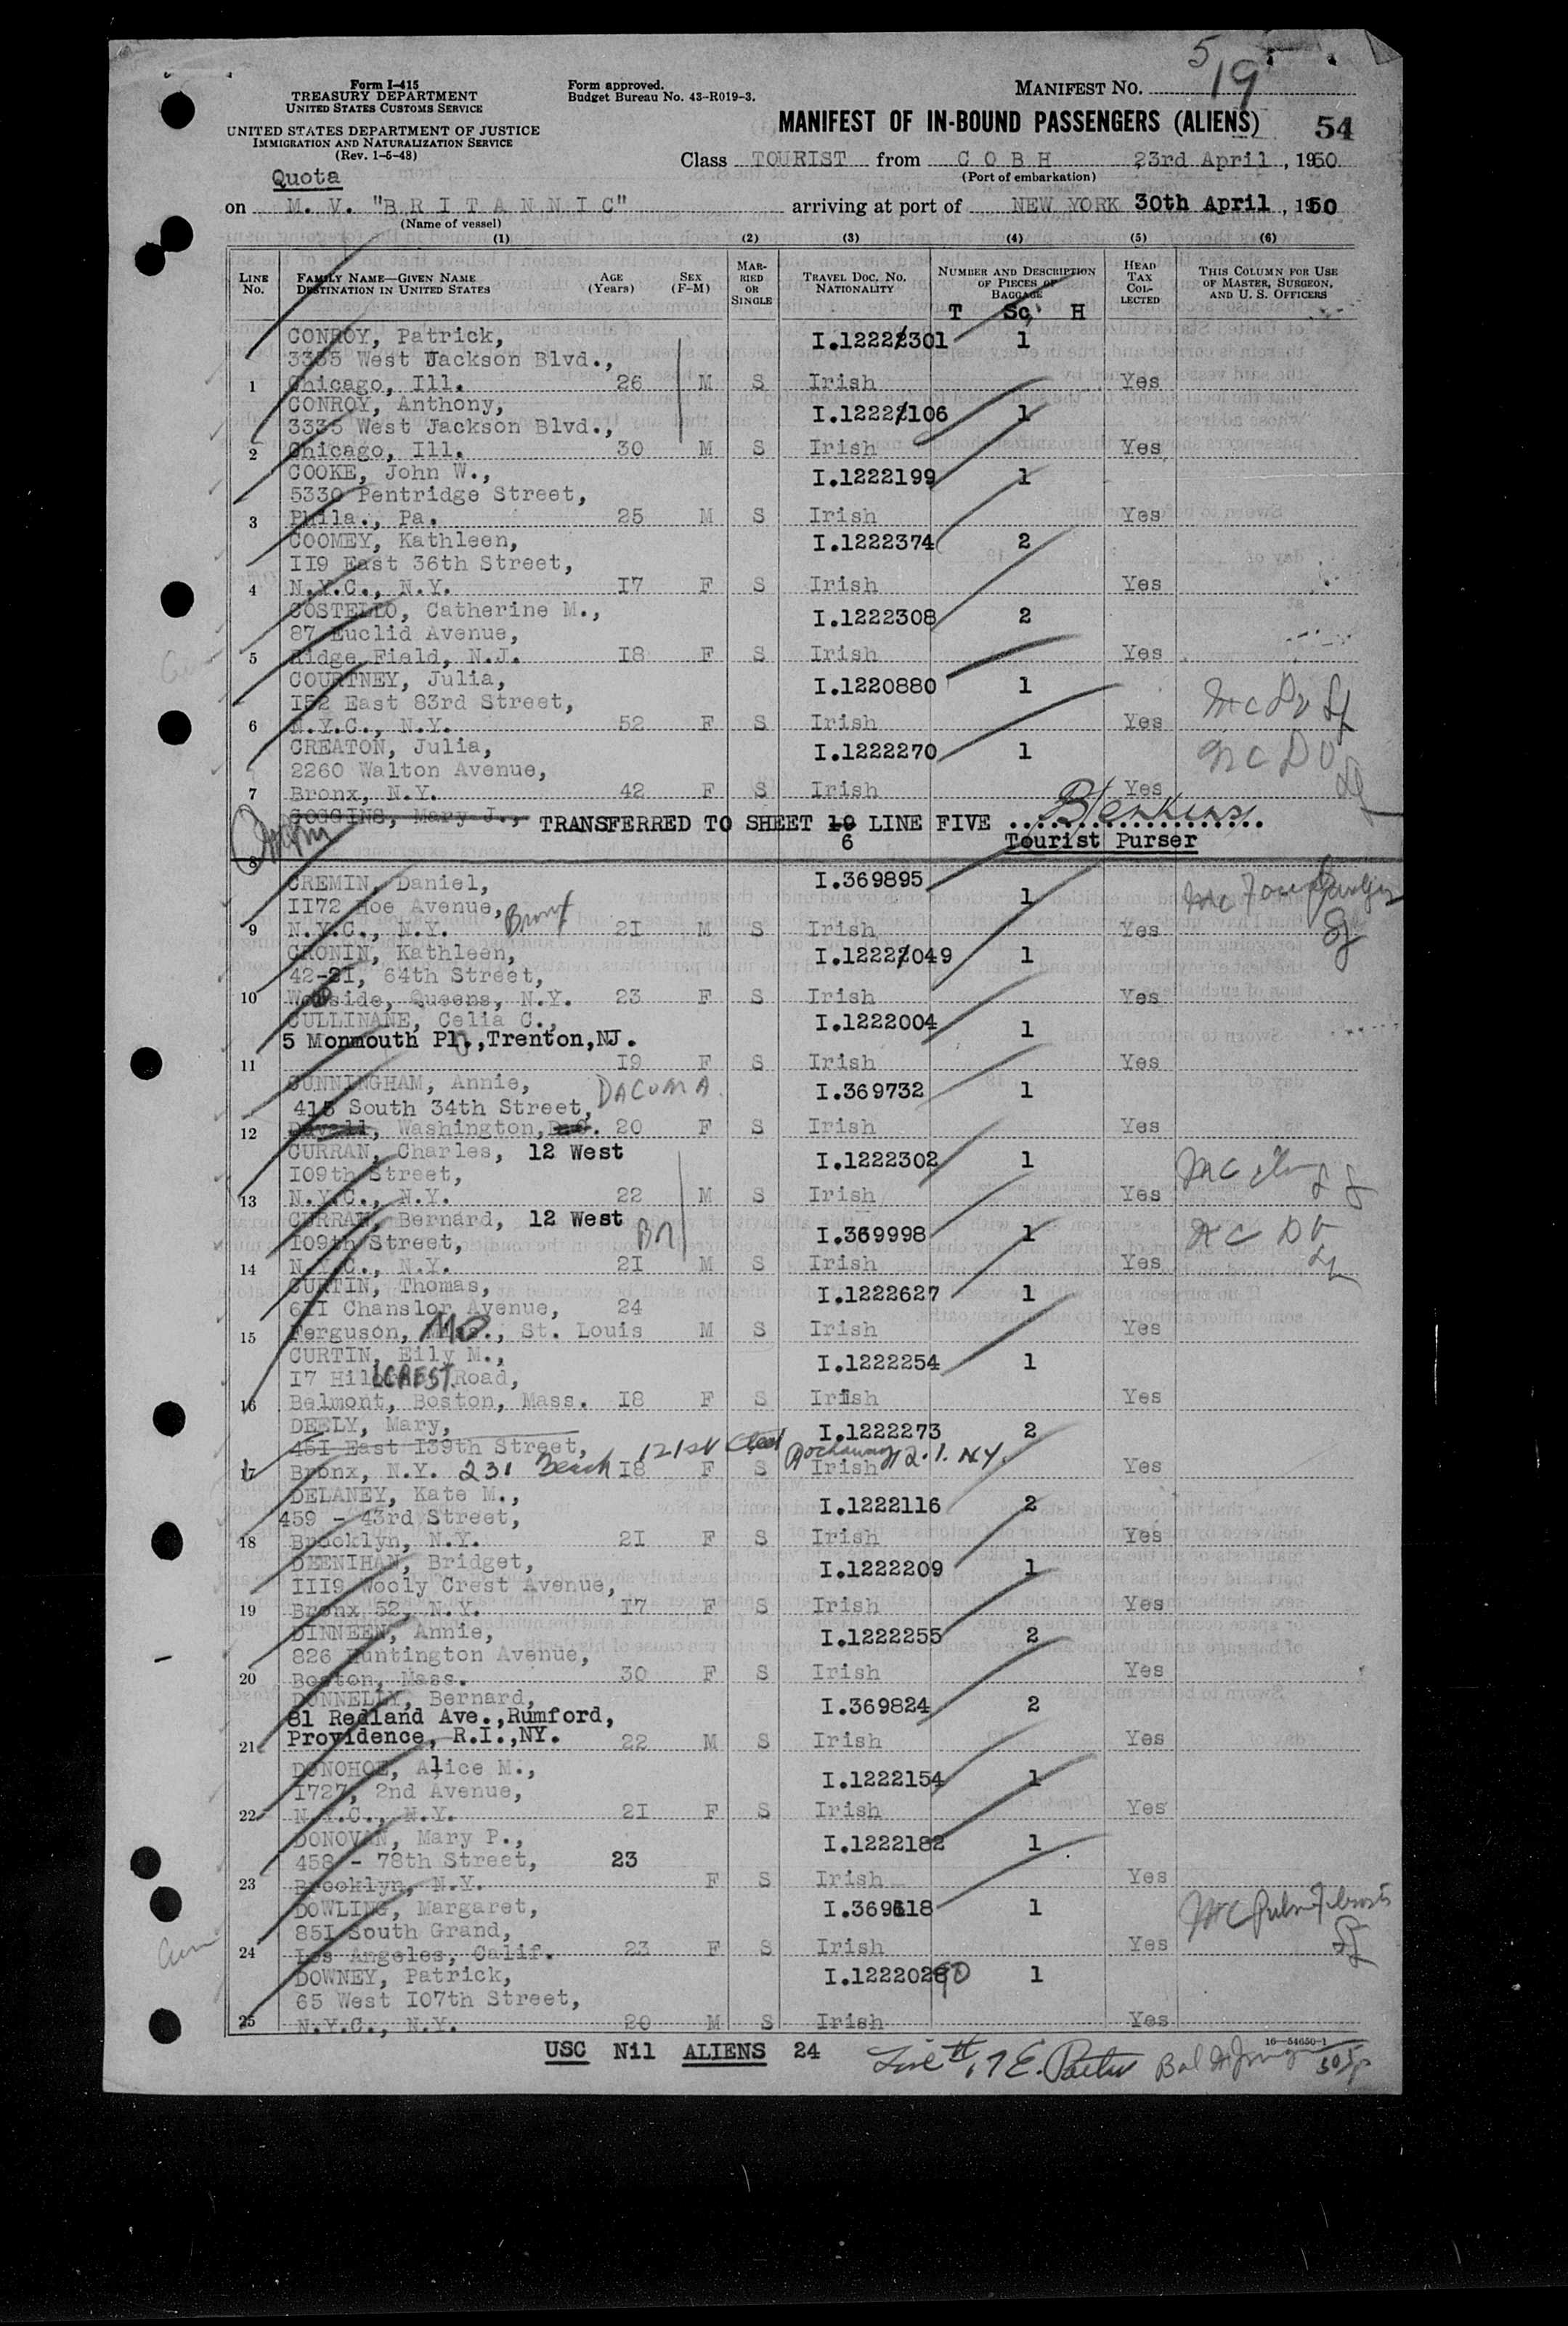 5/19
Form I-415
TREASURY DEPARTMENT
UNITED STATES CUSTOMS SERVICE
UNITED STATES DEPARTMENT OF JUSTICE
IMMIGRATION AND NATURALIZATION SERVICE
(Rev. 1-5-48)
Form approved.
Budget Bureau No. 43-R019-3.
MANIFEST NO.
MANIFEST OF IN-BOUND PASSENGERS (ALIENS) 54
Class TOURIST from C O B H 23rd April, 1950
(Port of embarkation)
Quota
on M. V. "B R I T A N N I C" arriving at port of NEW YORK 30th April, 1950
(Name of vessel)
(1) (2) (3) (4) (5) (6)
LINE No. FAMILY NAME—GIVEN NAME DESTINATION IN UNITED STATES AGE (Years) SEX (F-M) MARRIED OR SINGLE TRAVEL DOC. NO. NATIONALITY NUMBER AND DESCRIPTION OF PIECES OF BAGGAGE HEAD TAX COLLECTED THIS COLUMN FOR USE OF MASTER, SURGEON, AND U. S. OFFICERS
T Sc. H
CONROY, Patrick, I.1222301 1
3335 West Jackson Blvd.,
1 Chicago, Ill. 26 M S Irish Yes
CONROY, Anthony, I.1222106 1
3335 West Jackson Blvd.,
2 Chicago, Ill. 30 M S Irish Yes
COOKE, John W., I.1222199 1
5330 Pentridge Street,
3 Phila., Pa. 25 M S Irish Yes
COOMEY, Kathleen, I.1222374 2
II9 East 36th Street,
4 N.Y.C., N.Y. I7 F S Irish Yes
COSTELLO, Catherine M., I.1222308 2
87 Euclid Avenue,
5 Ridge Field, N.J. I8 F S Irish Yes
COURTNEY, Julia, I.1220880 1
I52 East 83rd Street,
6 N.Y.C., N.Y. 52 F S Irish Yes
CREATON, Julia, I.1222270 1
2260 Walton Avenue,
7 Bronx, N.Y. 42 F S Irish Yes
GOGGINS, Mary J., TRANSFERRED TO SHEET 10 LINE FIVE
6 Tourist Purser
8
CREMIN, Daniel, I.369895 1
II72 Hoe Avenue, Bronx
9 N.Y.C., N.Y. 2I M S Irish Yes
CRONIN, Kathleen, I.1222049 1
42-2I, 64th Street,
10 Woodside, Queens, N.Y. 23 F S Irish Yes
CULLINANE, Celia C., I.1222004 1
5 Monmouth Pl.,Trenton,NJ.
11 I9 F S Irish Yes
CUNNINGHAM, Annie, I.369732 1
415 South 34th Street, DACOMA
12 Washington, 20 F S Irish Yes
CURRAN, Charles, 12 West I.1222302 1
I09th Street,
13 N.Y.C., N.Y. 22 M S Irish Yes
CURRAN, Bernard, 12 West I.369998 1
I09th Street,
14 N.Y.C., N.Y. 2I M S Irish Yes
CURTIN, Thomas, I.1222627 1
6II Chanslor Avenue, 24
15 Ferguson, MO, St. Louis M S Irish Yes
CURTIN, Eily M., I.1222254 1
I7 HilLCREST Road,
16 Belmont, Boston, Mass. I8 F S Irish Yes
DEELY, Mary, I.1222273 2
451 East I39th Street,
17 Bronx, N.Y. 231 Beach 121st Street Rockaway N.Y. I8 F S Irish Yes
DELANEY, Kate M., I.1222116 2
459 - 43rd Street,
18 Brooklyn, N.Y. 2I F S Irish Yes
DEENIHAN, Bridget, I.1222209 1
III9 Wooly Crest Avenue,
19 Bronx 52, N.Y. I7 F S Irish Yes
DINNEEN, Annie, I.1222255 2
826 Huntington Avenue,
20 Boston, Mass. 30 F S Irish Yes
DONNELLY, Bernard, I.369824 2
81 Redland Ave.,Rumford,
21 Providence, R.I.,NY. 22 M S Irish Yes
DONOHOE, Alice M., I.1222154 1
I727, 2nd Avenue,
22 N.Y.C., N.Y. 2I F S Irish Yes
DONOVAN, Mary P., I.1222182 1
458 - 78th Street, 23
23 Brooklyn, N.Y. F S Irish Yes
DOWLING, Margaret, I.369618 1
85I South Grand,
24 Los Angeles, Calif. 23 F S Irish Yes
DOWNEY, Patrick, 1
65 West I07th Street,
25 N.Y.C., N.Y. 20 M S Irish Yes
USC Nil ALIENS 24
16—54650-1